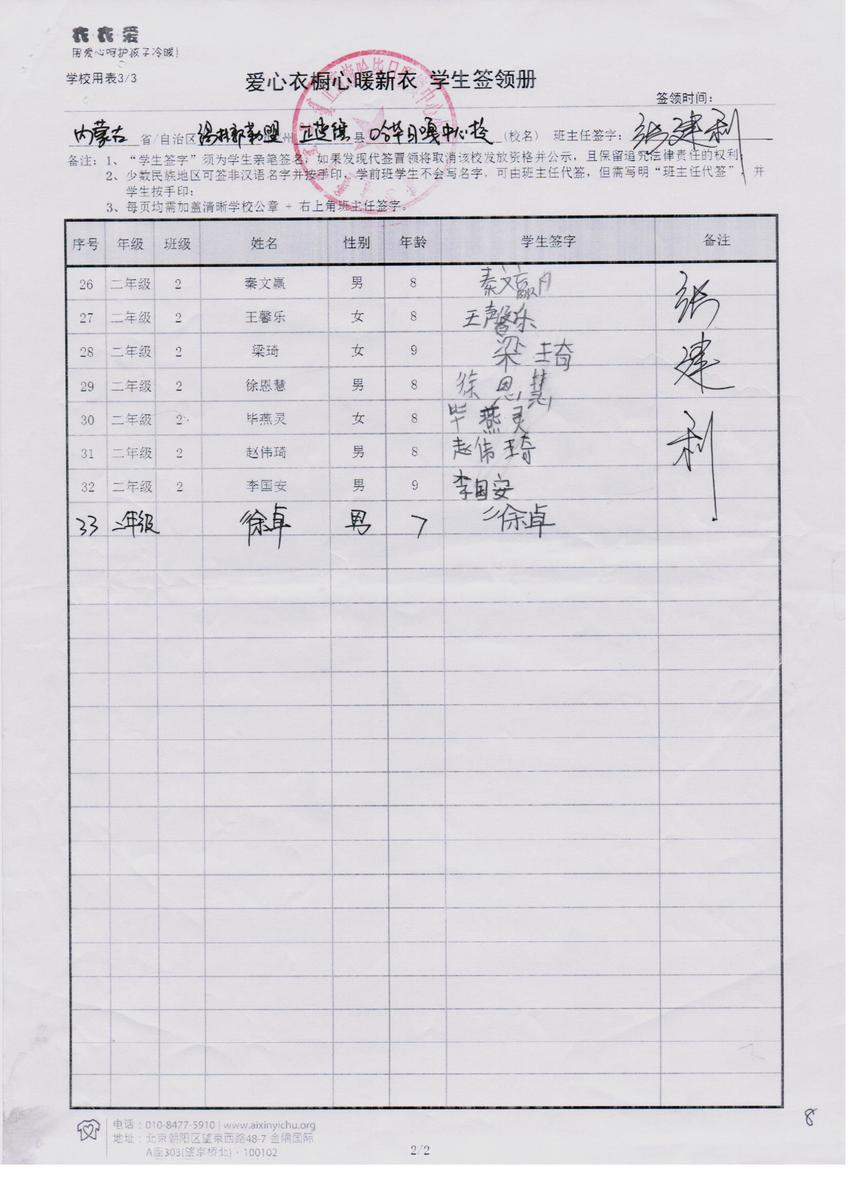 衣衣爱
用爱心呵护孩子冷暖!
学校用表3/3
爱心衣橱心暖新衣 学生签领册
签领时间:
内蒙古 省/自治区 锡林郭勒盟 州 正蓝旗 县 哈毕日嘎中心校 (校名) 班主任签字: 张建利
备注: 1、“学生签字”须为学生亲笔签名, 如果发现代签冒领将取消该校发放资格并公示, 且保留追究法律责任的权利
2、少数民族地区可签非汉语名字并按手印, 学前班学生不会写名字, 可由班主任代签, 但需写明“班主任代签”, 并
学生按手印;
3、每页均需加盖清晰学校公章 + 右上角班主任签字。
序号 年级 班级 姓名 性别 年龄 学生签字 备注
26 二年级 2 秦文赢 男 8 秦文赢
27 二年级 2 王馨乐 女 8 王馨乐
28 二年级 2 梁琦 女 9 梁琦
29 二年级 2 徐恩慧 男 8 徐恩慧
30 二年级 2 毕燕灵 女 8 毕燕灵
31 二年级 2 赵伟琦 男 8 赵伟琦
32 二年级 2 李国安 男 9 李国安
33 二年级 徐卓 男 7 徐卓
张建利
电话: 010-8477-5910 | www.aixinyichu.org
地址: 北京朝阳区望京西路48-7 金隅国际
A座303(望京桥北) · 100102
2/2
8